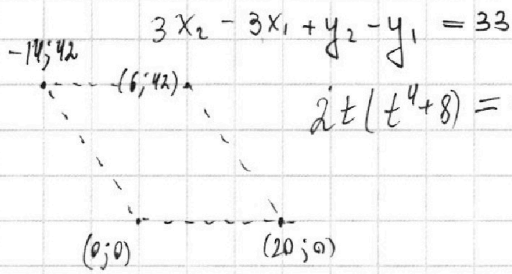 3x₂ - 3x₁ + y₂ - y₁ = 33
-14;42
(6;42)
2t(t⁴+8) =
(0;0)
(20;0)